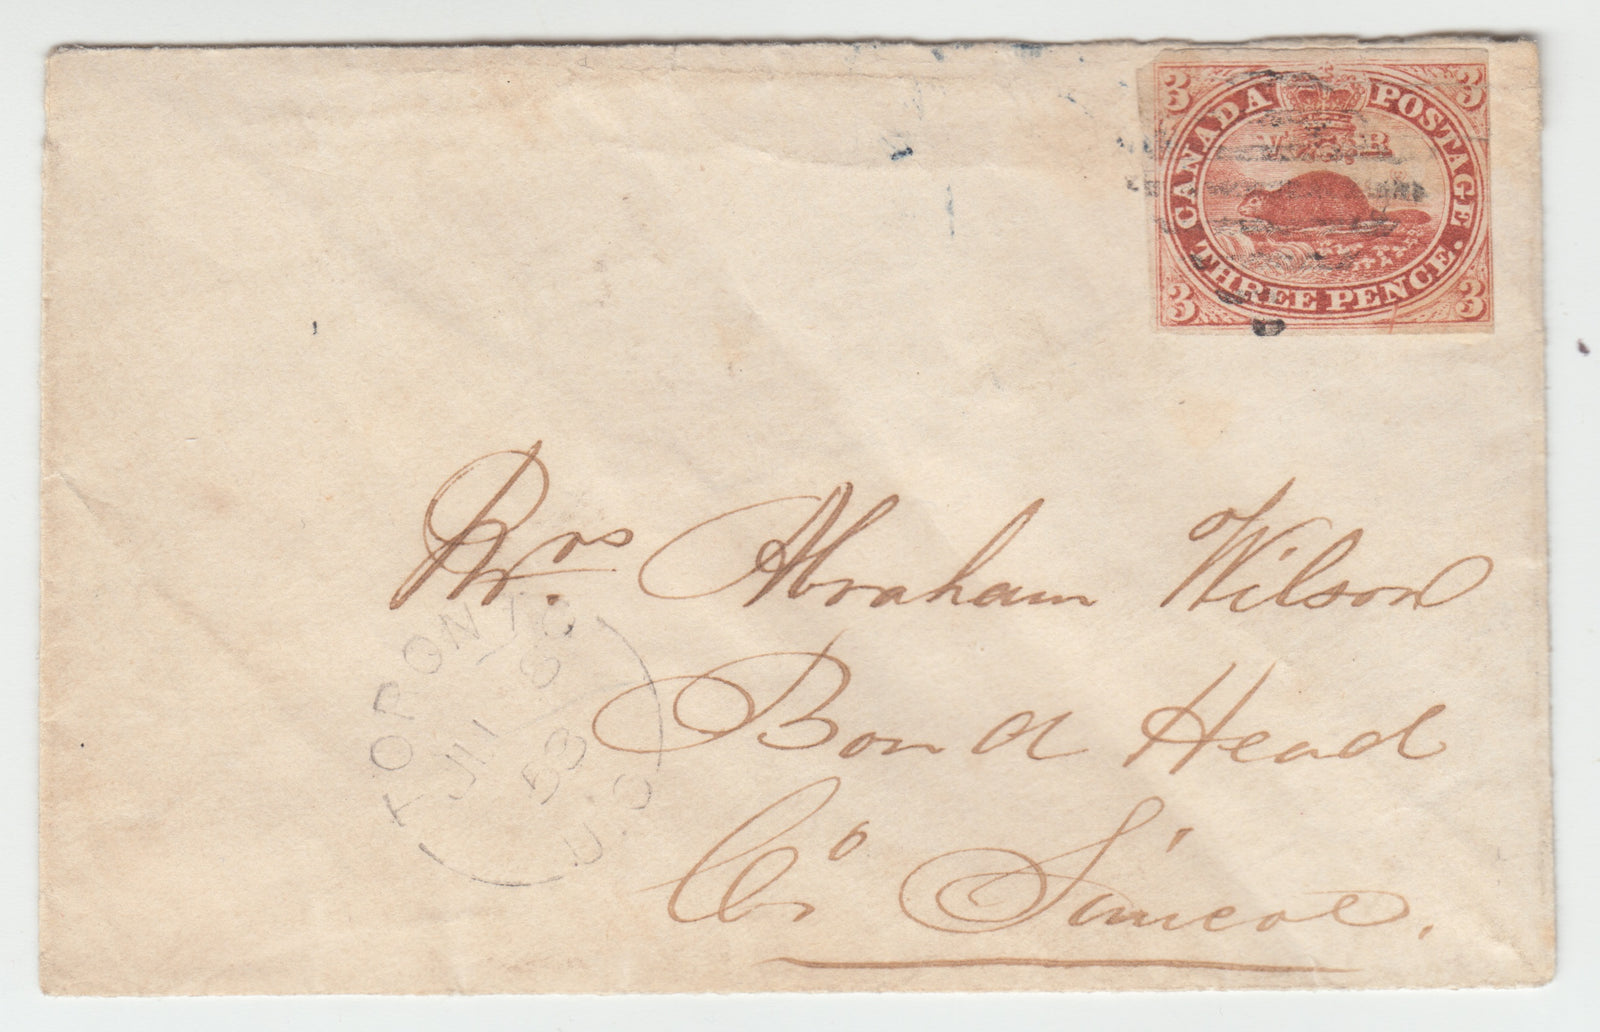 3 CANADA POSTAGE 3
V R
3 THREE PENCE. 3
Mrs. Abraham Wilson
Bond Head
Co Simcoe.
TORONTO
58